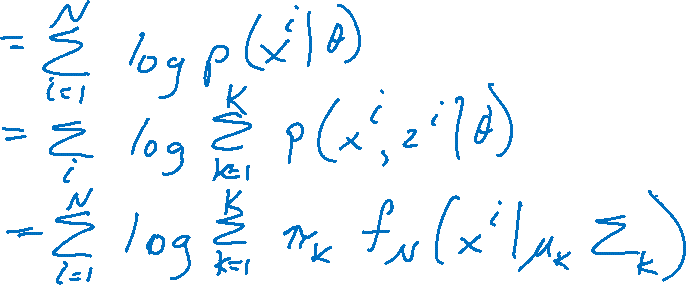 = \sum_{i=1}^{N} log p(x^i | θ)
= \sum_{i} log \sum_{k=1}^{K} p(x^i, z^i | θ)
= \sum_{i=1}^{N} log \sum_{k=1}^{K} π_k f_N(x^i | μ_k Σ_k)